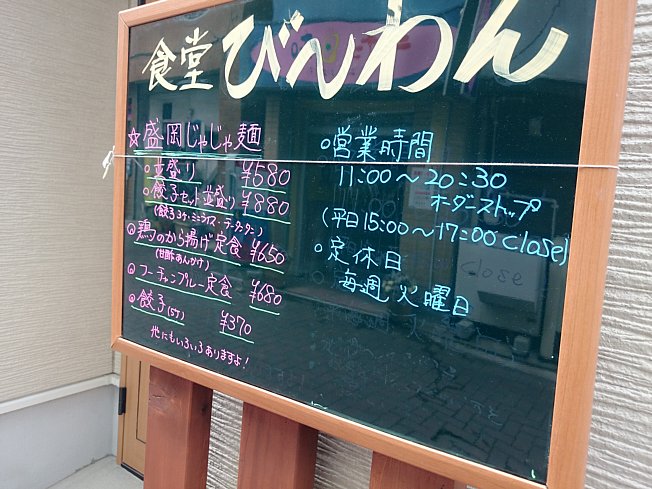 食堂 びんわん
☆盛岡じゃじゃ麺
○並盛り ¥580
○餃子セット並盛り ¥880
(餃子3ケ・ミニライス・チータンタン)
○鶏のから揚げ定食 ¥650
(甘酢あんかけ)
○フーチャンプルー定食 ¥680
○餃子(5ケ) ¥370
他にもいろいろありますよ!
○営業時間
11:00～20:30
オーダーストップ
(平日15:00～17:00 close)
○定休日
毎週火曜日
close